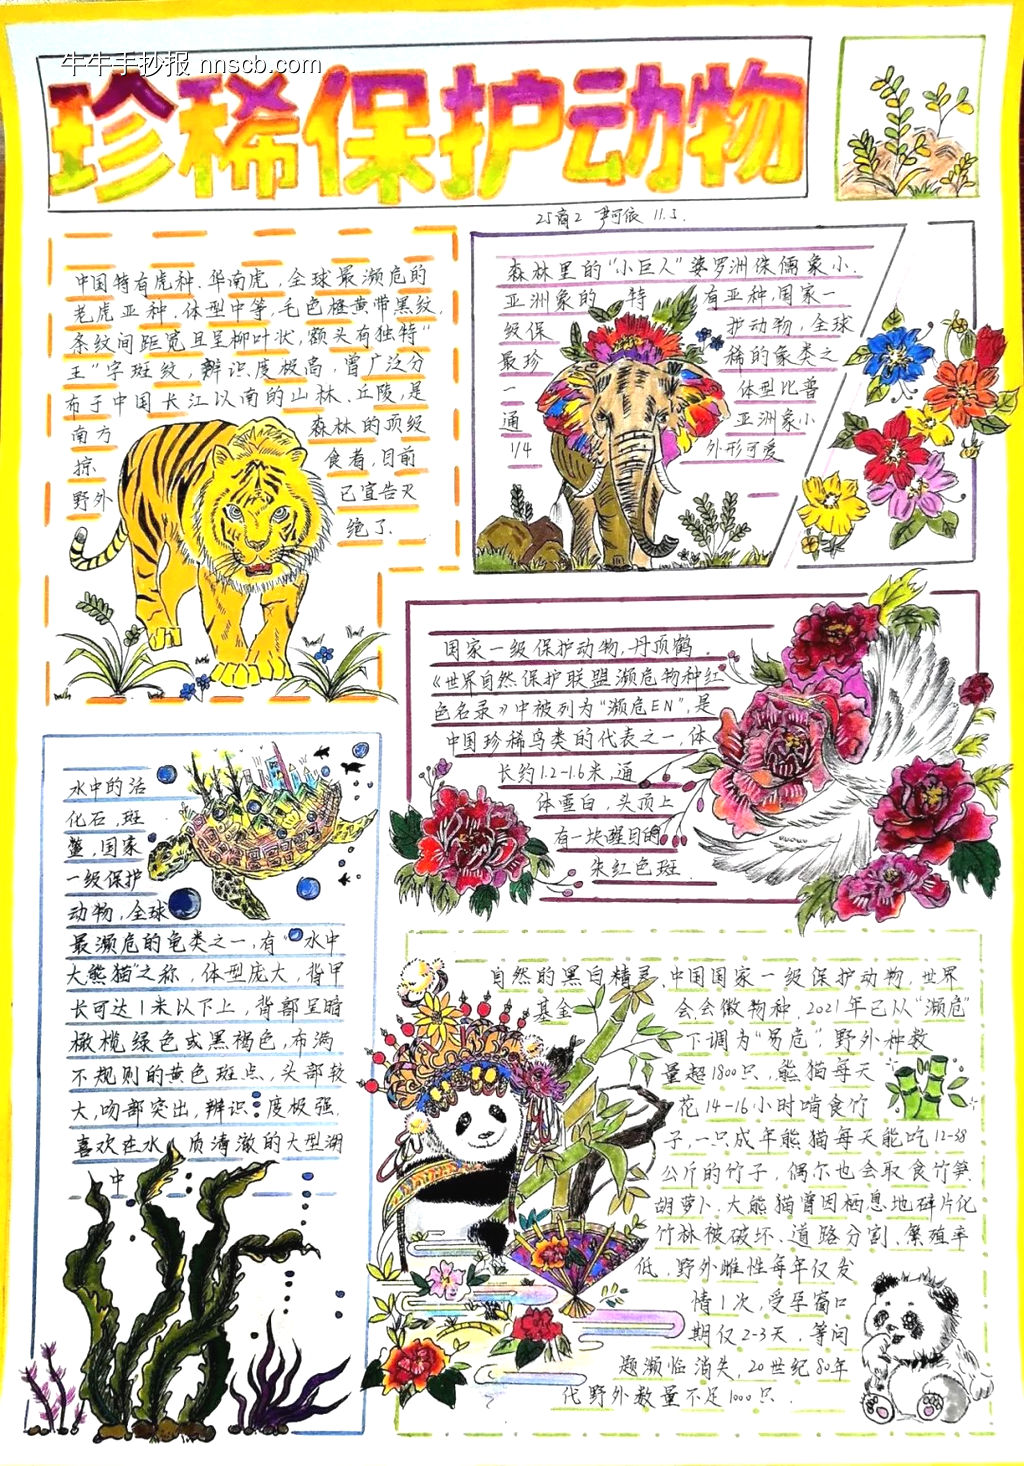 牛牛手抄报 nnscb.com
珍稀保护动物
25商2 尹可依 11.5.
中国特有虎种.华南虎,全球最濒危的
老虎亚种.体型中等,毛色橙黄带黑纹,
条纹间距宽且呈柳叶状,额头有独特"
王"字斑纹,辨识度极高,曾广泛分
布于中国长江以南的山林、丘陵,是
南方 森林的顶级
掠 食者,目前
野外 已宣告灭
绝了.
森林里的"小巨人"婆罗洲侏儒象小.
亚洲象的 特 有亚种,国家一
级保 护动物,全球
最珍 稀的象类之
一 体型比普
通 亚洲象小
1/4 外形可爱
国家一级保护动物,丹顶鹤.
《世界自然保护联盟濒危物种红
色名录》中被列为"濒危EN",是
中国珍稀鸟类的代表之一,体
长约1.2-1.6米,通
体雪白,头顶上
有一块醒目的
朱红色斑.
水中的活
化石,斑
鳖,国家
一级保护
动物,全球
最濒危的龟类之一,有"水中
大熊猫"之称,体型庞大,背甲
长可达1米以下上,背部呈暗
橄榄绿色或黑褐色,布满
不规则的黄色斑点,头部较
大,吻部突出,辨识度极强.
喜欢在水质清澈的大型湖
中
自然的黑白精灵.中国国家一级保护动物,世界
基金 会会徽物种,2021年已从"濒危"
下调为"易危".野外种数
量超1800只,熊猫每天
花14-16小时啃食竹
子,一只成年熊猫每天能吃12-38
公斤的竹子,偶尔也会取食竹笋
胡萝卜.大熊猫曾因栖息地碎片化
竹林被破坏、道路分割、繁殖率
低,野外雌性每年仅发
情1次,受孕窗口
期仅2-3天.等问
题濒临消失,20世纪80年
代野外数量不足1000只.